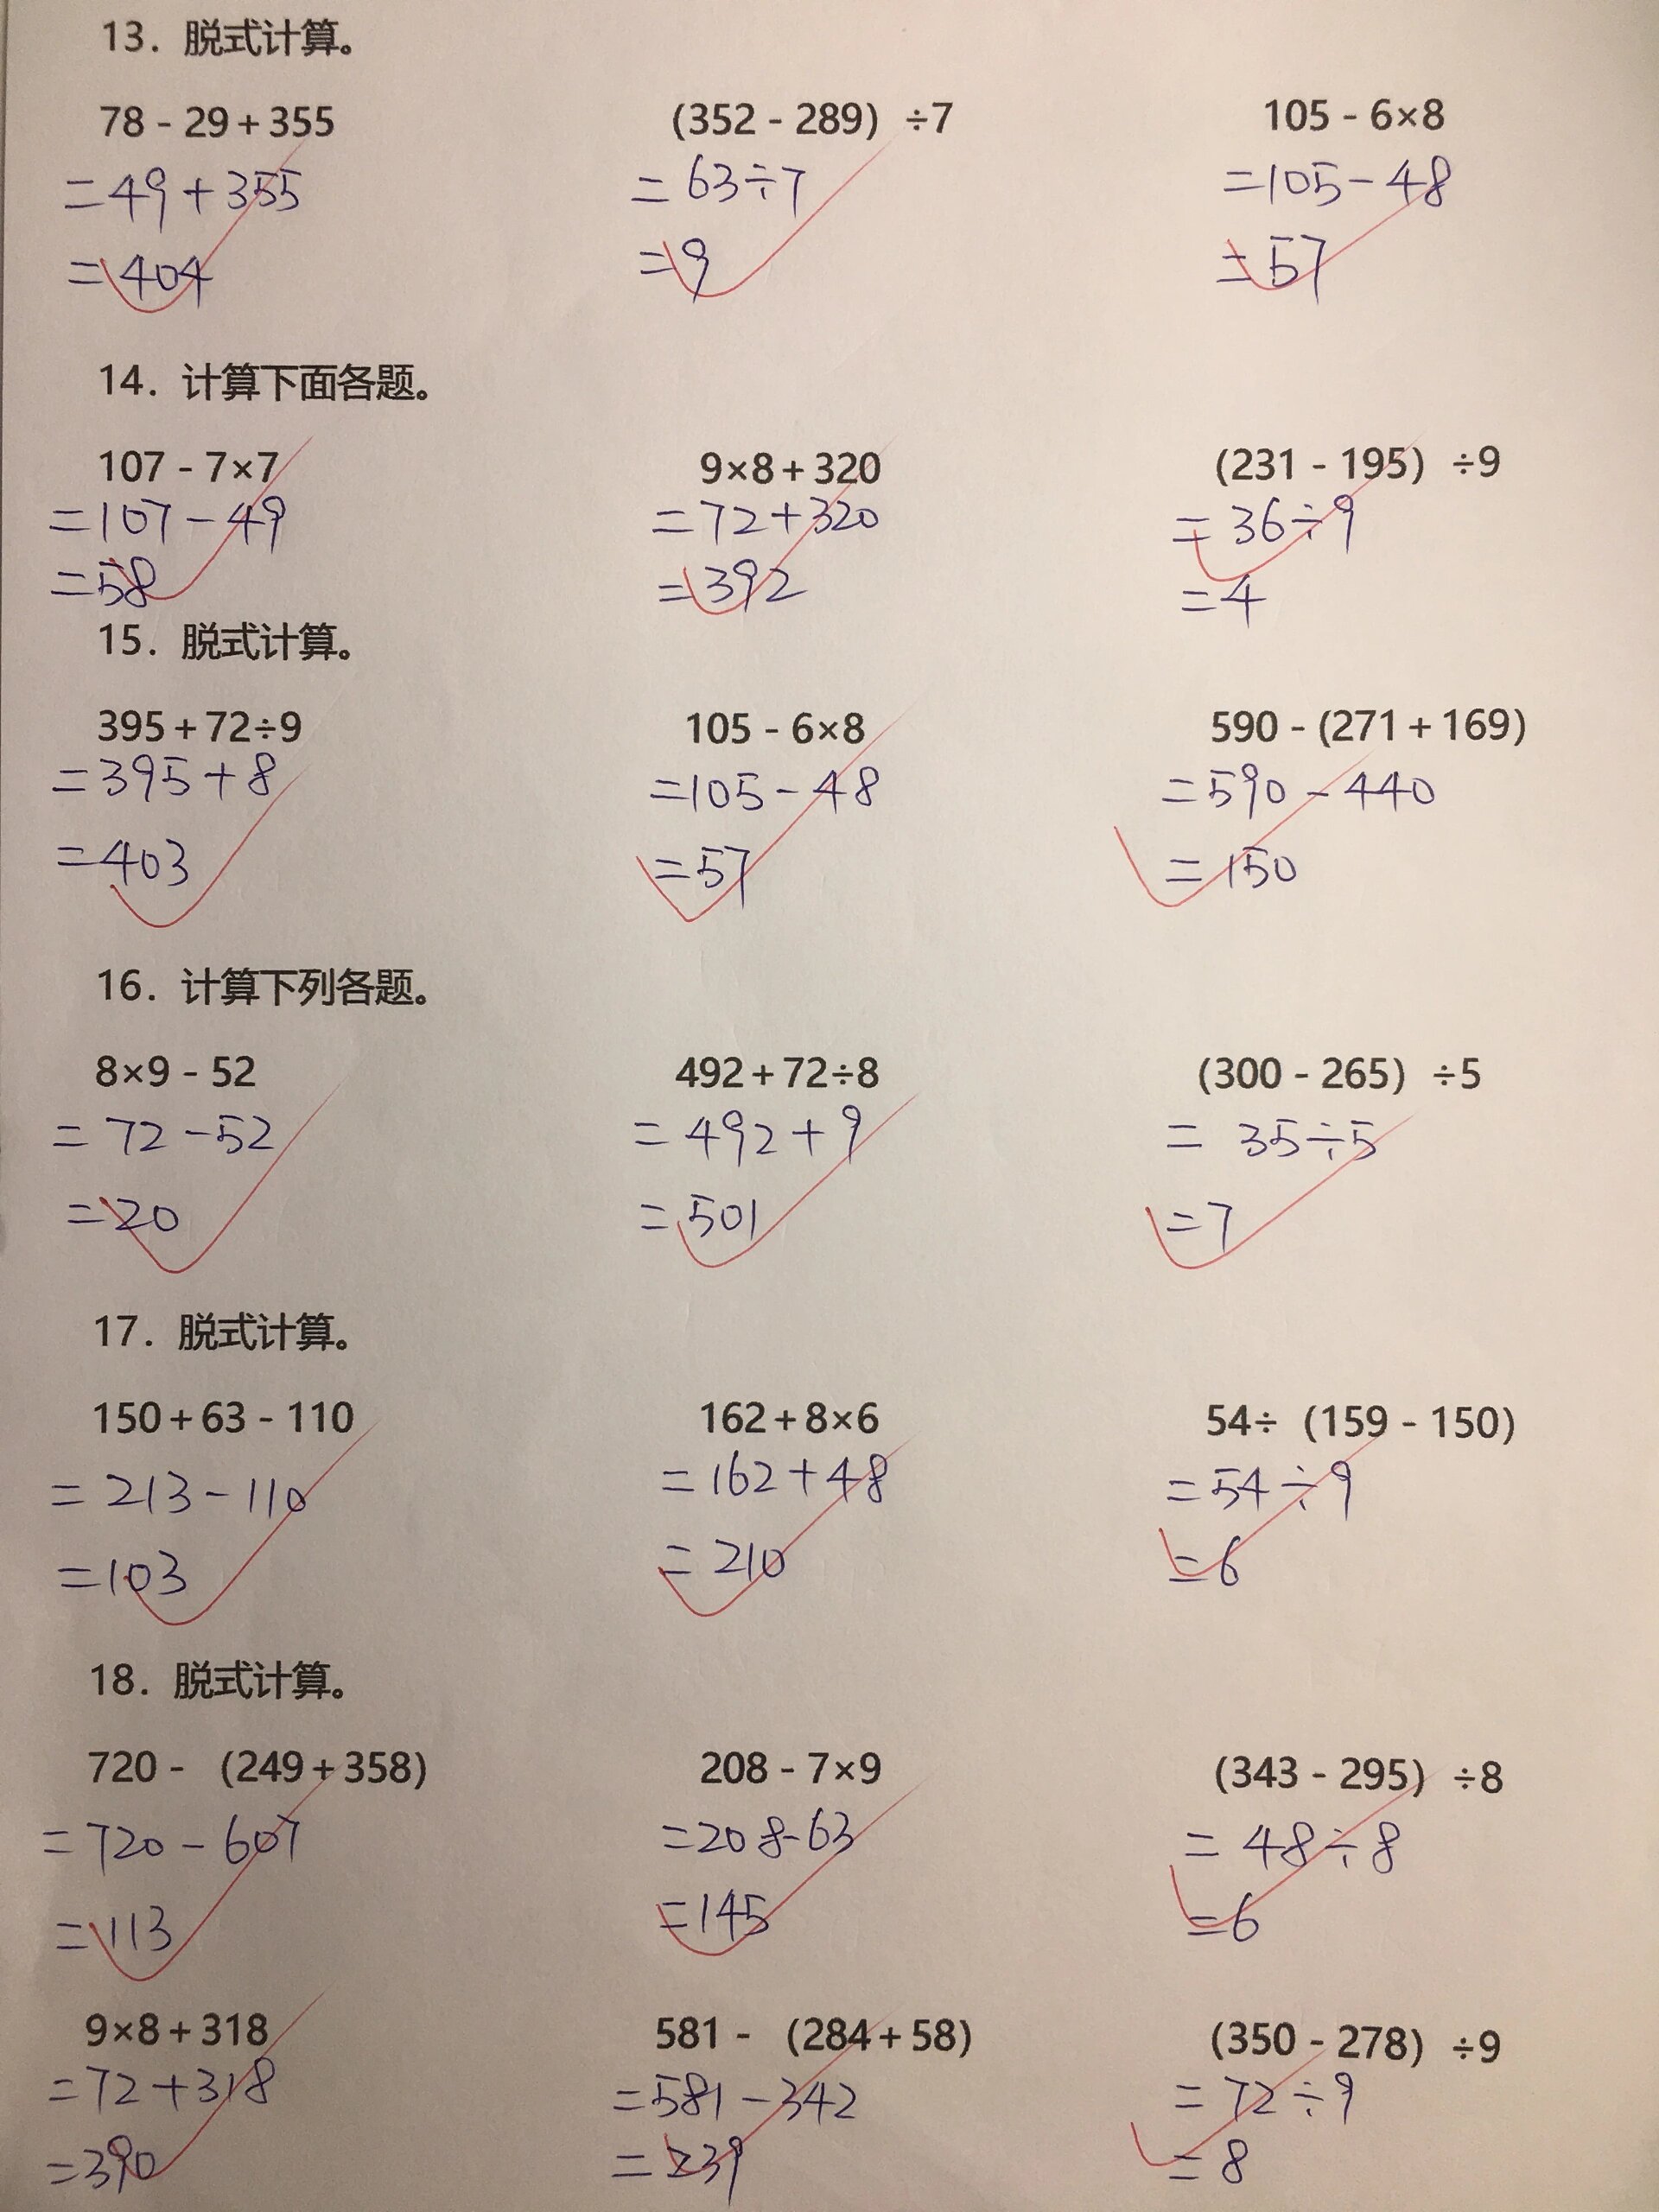 13. 脱式计算。
78 - 29 + 355 (352 - 289) ÷7 105 - 6×8
= 49 + 355 = 63÷7 =105 - 48
= 404 = 9 = 57
14. 计算下面各题。
107 - 7×7 9×8 + 320 (231 - 195) ÷9
=107 - 49 = 72+320 = 36÷9
=58 =392 =4
15. 脱式计算。
395 + 72÷9 105 - 6×8 590 - (271 + 169)
=395+8 =105-48 =590-440
=403 =57 =150
16. 计算下列各题。
8×9 - 52 492 + 72÷8 (300 - 265) ÷5
= 72-52 = 492+9 = 35÷5
=20 = 501 =7
17. 脱式计算。
150 + 63 - 110 162 + 8×6 54÷ (159 - 150)
= 213-110 =162+48 =54÷9
=103 = 210 =6
18. 脱式计算。
720 - (249 + 358) 208 - 7×9 (343 - 295) ÷8
=720-607 =208-63 = 48÷8
=113 =145 =6
9×8 + 318 581 - (284 + 58) (350 - 278) ÷9
=72+318 =581-342 =72÷9
=390 =239 =8